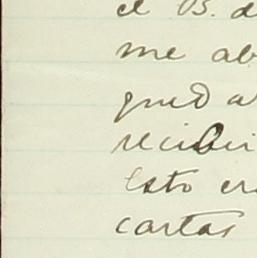 el B. d
me ab
qued a
recibir
Esto er
cartas